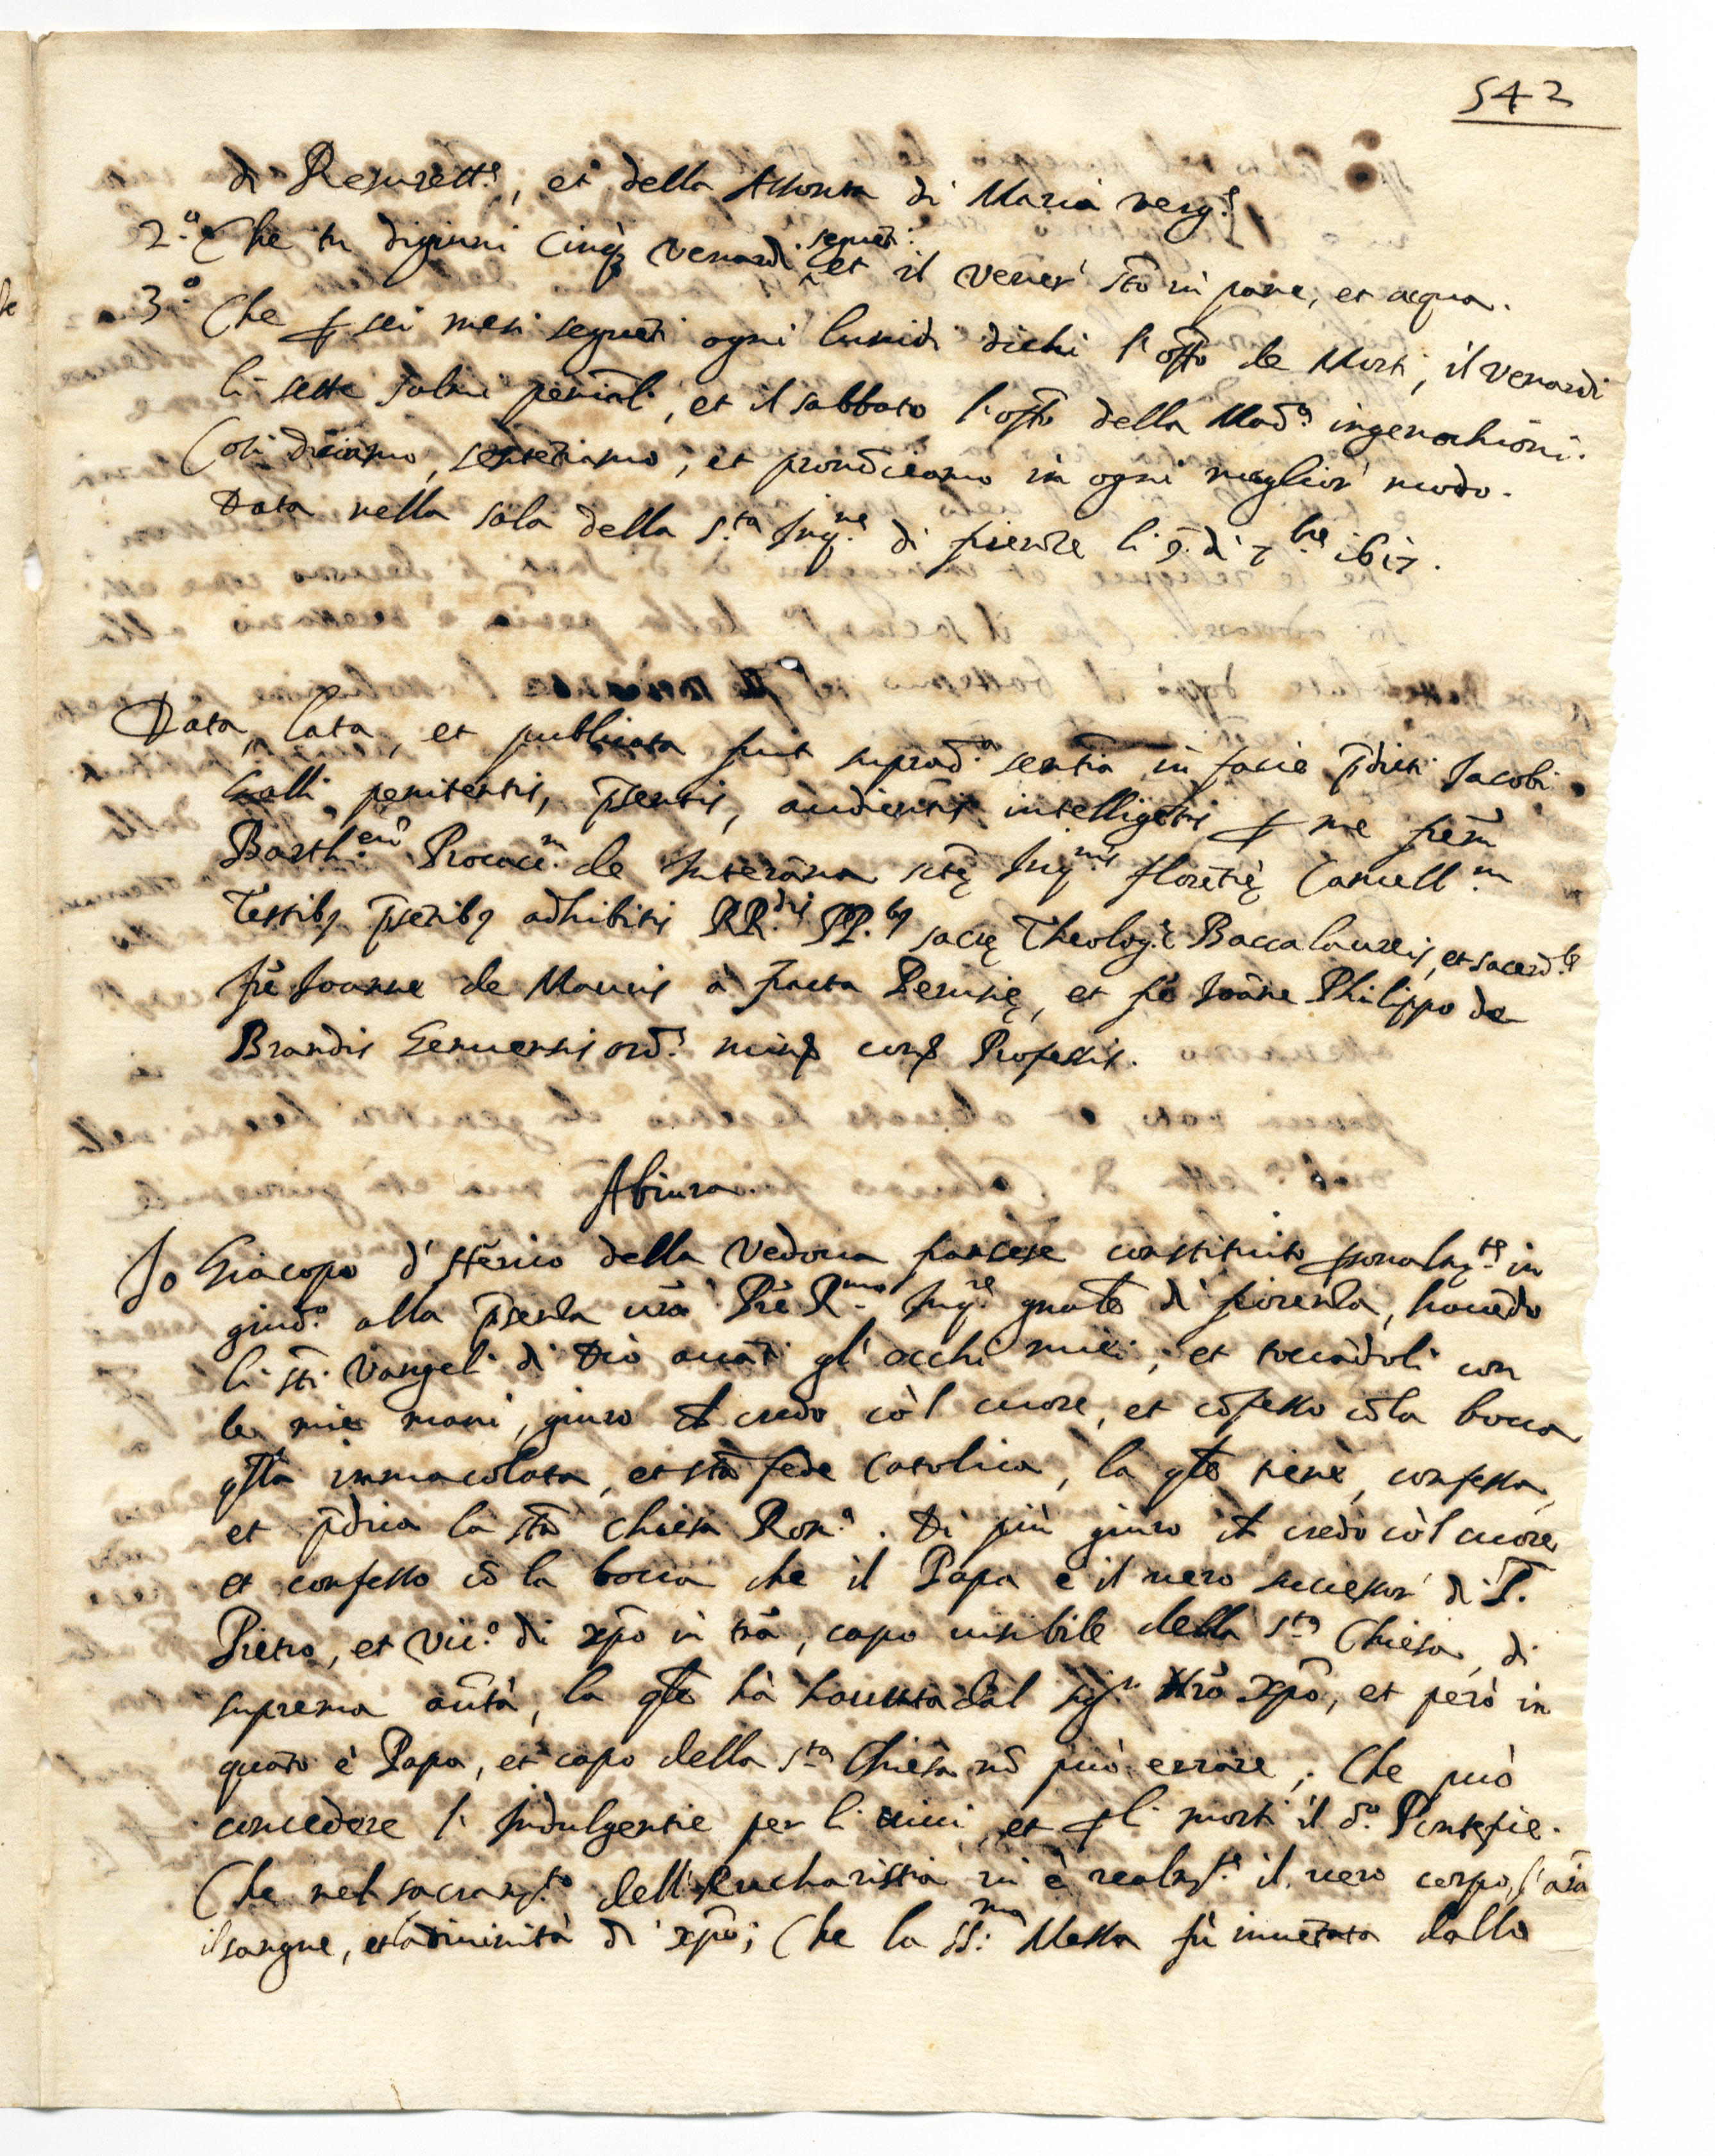 542
di Resurett.e, et della Assonta di Maria verg.e
2.o Che tu digiuni cinq; venardi segueti et il vener' sto in pane, et acqua.
3.o Che p sei mesi segueti ogni lunidi dichi l'offo de Morti, il venardi
li sette salmi penitali, et il sabbato l'offo della Mad.a ingenochioni.
Cosi diciamo, sentetiamo, et pronūciamo in ogni meglior' modo.
Data nella sala della S.ta Inq.ne di fienze li 9. di 7.bre 1617.
Data, lata, et publicata fuit suprad.a sentia in facie pdicti Jacobi
Galli penitentis, psentis, audientis intelligetis p me frem
Barth.eum Procacc.m de Interamna sctę Inq.nis floretię Cancell.m
Testibq psetibq adhibitis RR.dis PP.bq sacrę Theolog.ę Baccalaureis, et sacerd.be
fre Joanne de Maneis a fracta Perusię, et fre Joāne Philippo de
Brandis Genuensi ord.s min; con; Professis.
Abiura.
Io Giacopo d'Herico della Vedoua francese constituito psonalm.te in
giud.o alla psenza vra Pre R.mo Inq.re gnale di fiorenza, hauedo
li sti Vangeli di Dio auati gl'occhi miei, et toccadoli con
le mie mani, giuro et credo co'l cuore, et cofesso cola bocca
qlla immacolata, et sta fede Catolica, la qle tiene, confessa,
et pdica la sta chiesa Rom.a. Di più giuro et credo co'l cuore
et confesso co la bocca che il Papa è il uero successor' di S.
Pietro, et Vic.o di xpo in tra, capo uisibile della S.ta Chiesa, di
suprema autà, la qle hà hauuta dal sig.r Nro xpo, et però in
quato è Papa, et capo della S.ta Chiesa no può errare; Che può
concedere l'Indulgentie per li uiui, et p li morti il d.o Pontefice.
Che nel sacram.to dell'Eucharistia ui è realm.te il uero corpo, l'aia
il sangue, et la diuinità di xpo; Che la SS.ma Messa fù inuetata dallo